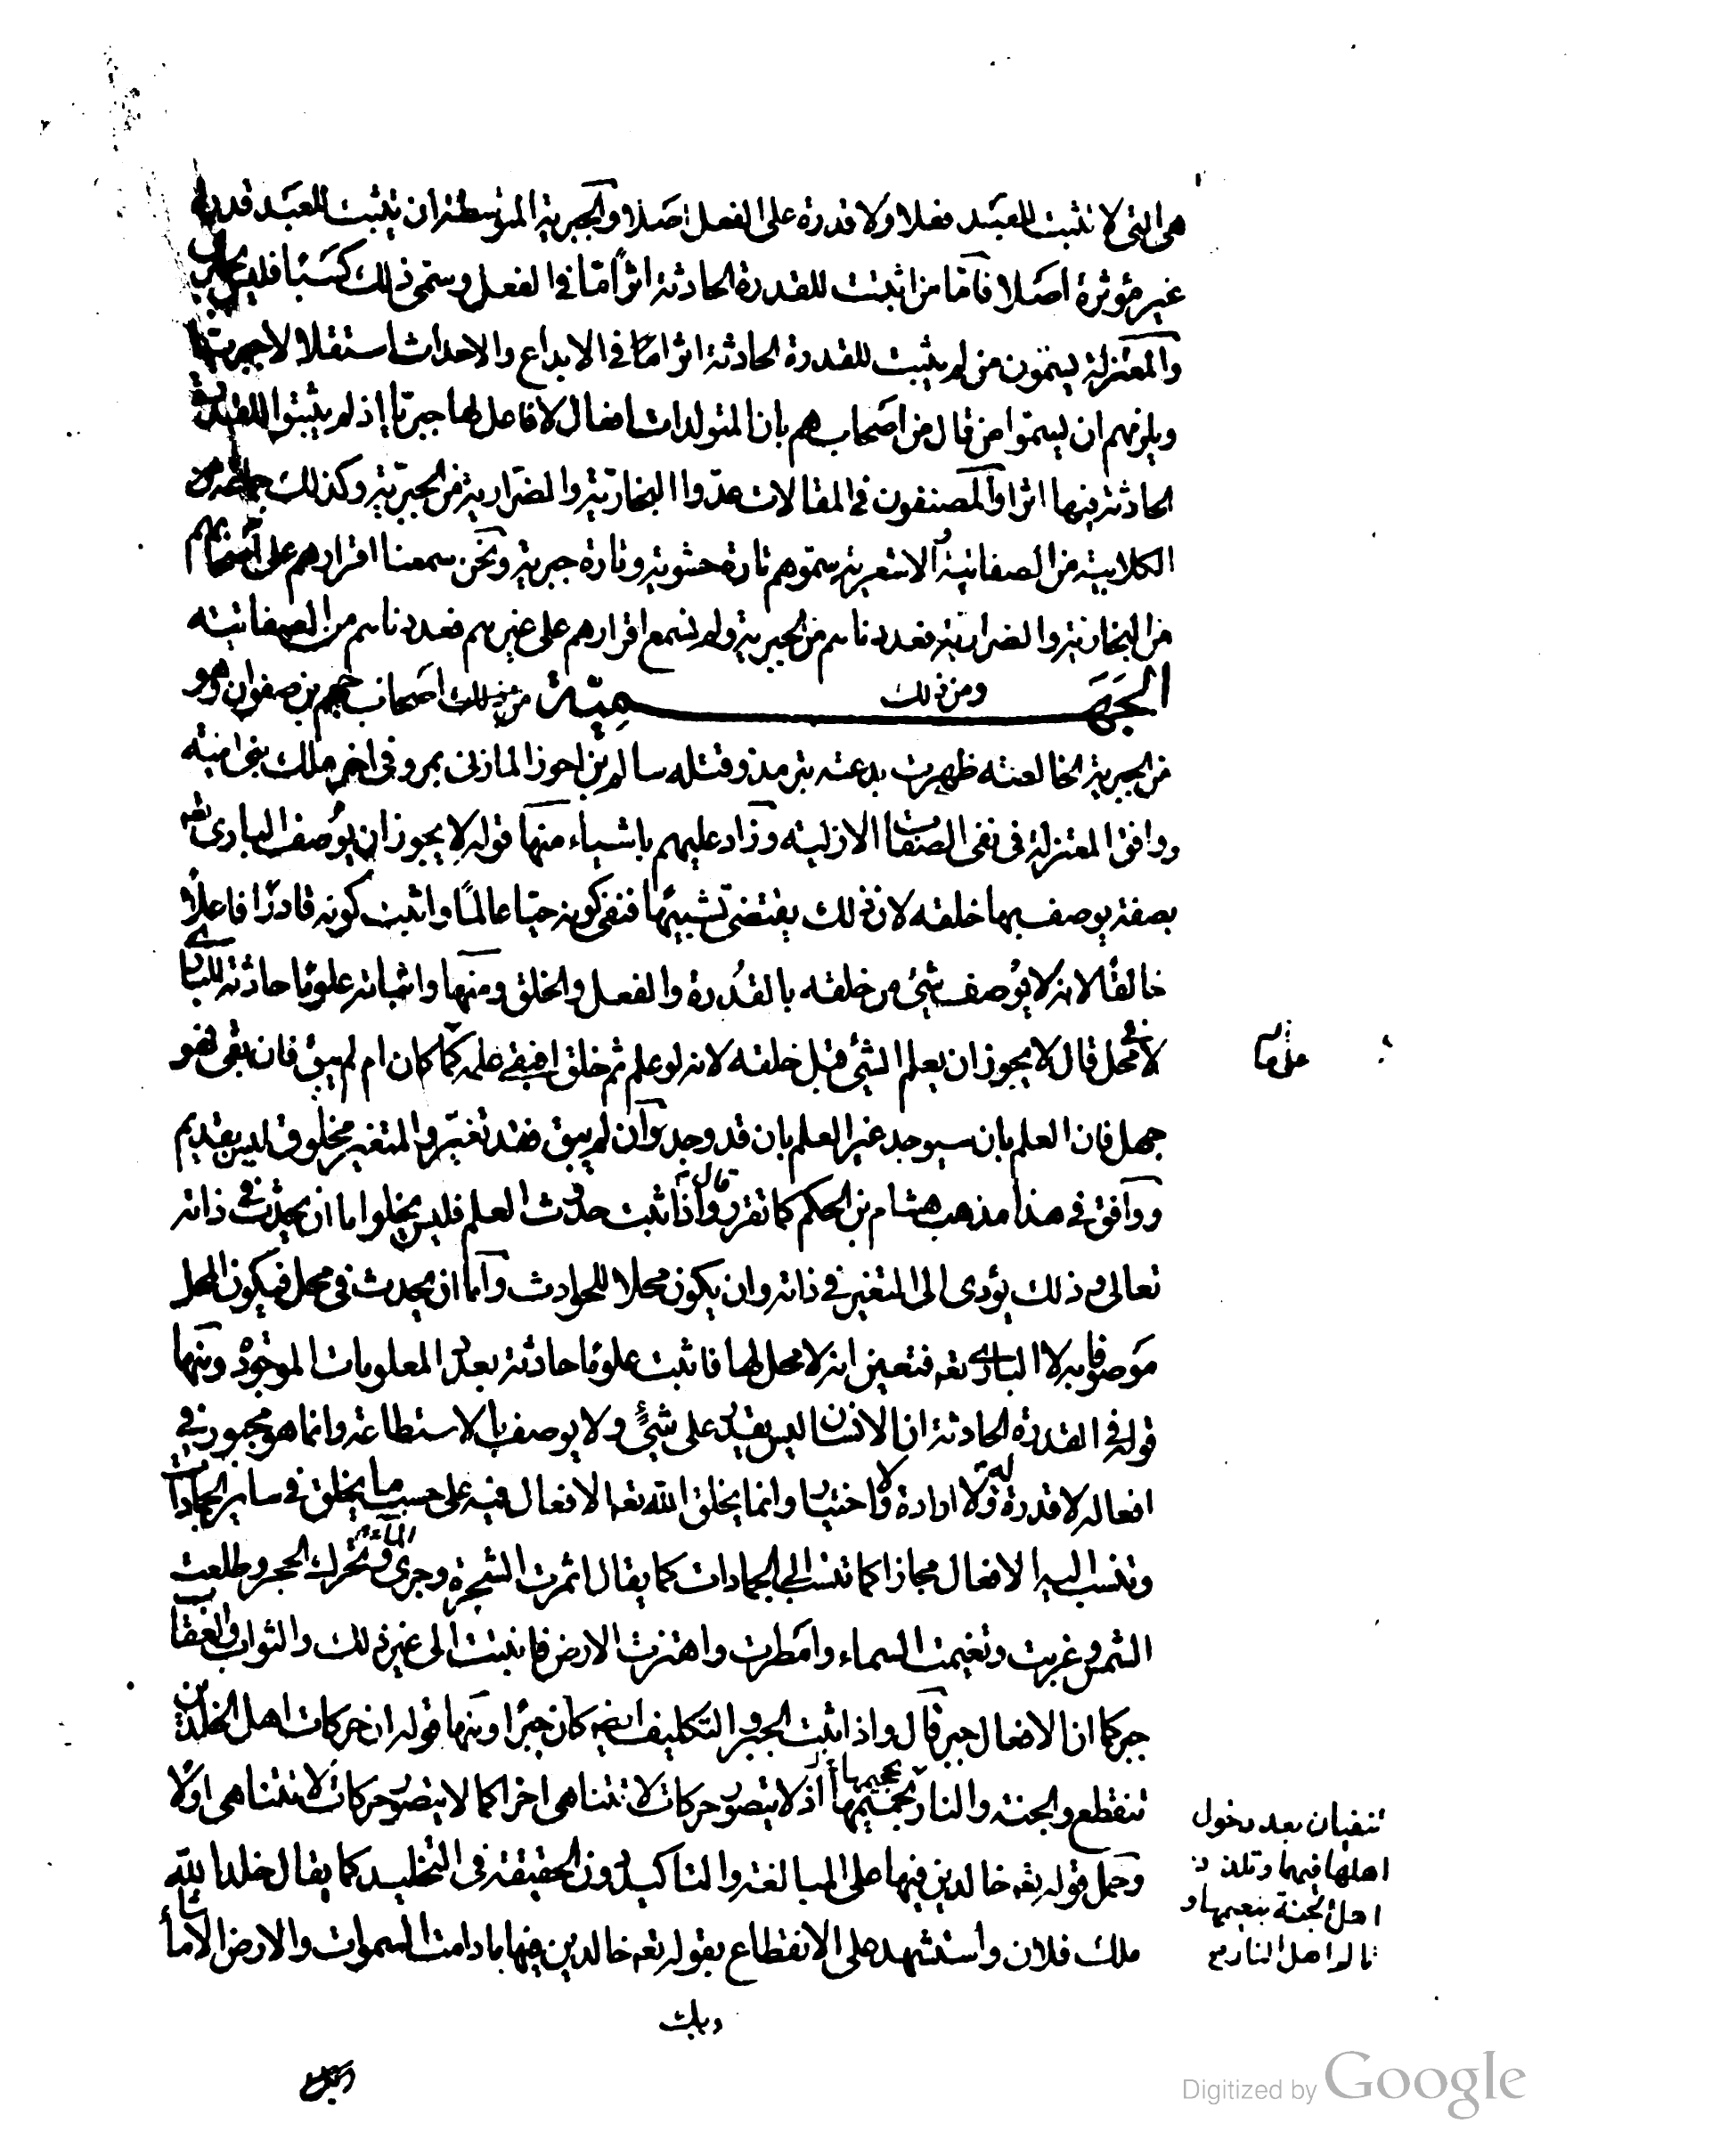 هي التي لا تثبت للعبد فعلا ولا قدرة على الفعل اصلا والجبرية المتوسطة ان يثبت للعبد قدرة
غير مؤثرة اصلا فاما من اثبت للقدرة الحادثة اثرا ما في الفعل وسمى ذلك كسبا فليس بجبري
والمعتزلة يسمون من لم يثبت للقدرة الحادثة اثرا ما في الابداع والاحداث استقلالا جبريا
ويلزمهم ان يسموا من قال من اصحابهم بان المتولدات افعال لا فاعل لها جبريا اذ لم يثبتوا للقدرة
الحادثة فيها اثرا والمصنفون في المقالات عدوا النجارية والضرارية من الجبرية وكذلك جماعة من
الكلابية من الصفاتية والاشعرية سموهم تارة حشوية وتارة جبرية ونحن سمعنا اقرارهم على اصحابهم
من النجارية والضرارية فعددناهم من الجبرية ولم نسمع اقرارهم على غيرهم فعددناهم من الصفاتية
ومن ذلك الجهمية من ذلك اصحاب جهم بن صفوان وهو
من الجبرية الخالصة ظهرت بدعته بترمذ وقتله سالم بن احوز المازني بمرو في اخر ملك بني امية
ووافق المعتزلة في نفي الصفات الازلية وزاد عليهم باشياء منها قوله لا يجوز ان يوصف الباري تعه
بصفة يوصف بها خلقه لان ذلك يقتضي تشبيها فنفى كونه حيا عالما واثبت كونه قادرا فاعلا
خالقا لانه لا يوصف شئ من خلقه بالقدرة والفعل والخلق ومنها واثباته علوما حادثة للباري
لا في محل قال لا يجوز ان يعلم الشئ قبل خلقه لانه لو علم ثم خلق افبقي علمه كما كان ام لم يبق فان بقي فهو
على ما
جهل فان العلم بان سيوجد غير العلم بان قد وجد وان لم يبق فقد تغير والمتغير مخلوق ليس بقديم
ووافق في هذا مذهب هشام بن الحكم كما تقرر قال واذا ثبت حدوث العلم فليس يخلوا ما ان يحدث في ذاته
تعالى وذلك يؤدي الى التغير في ذاته وان يكون محلا للحوادث واما ان يحدث في محل فيكون المحل
موصوفا به لا الباري تعه فتعين انه لا محل لها فاثبت علوما حادثة بعدد المعلومات الموجودة ومنها
قوله في القدرة الحادثة ان الانسان ليس يقدر على شئ ولا يوصف بالاستطاعة وانما هو مجبور في
افعاله لا قدرة له ولا ارادة ولا اختيار وانما يخلق الله تعه الافعال فيه على حسب ما يخلق في ساير الجمادات
وتنسب اليه الافعال مجازا كما تنسب الى الجمادات كما يقال اثمرت الشجرة وجرى الماء وتحرك الحجر وطلعت
الشمس وغربت وتغيمت السماء وامطرت واهتزت الارض فانبتت الى غير ذلك والثواب والعقاب
جبر كما ان الافعال جبر قال واذا ثبت الجبر والتكليف ايضه كان جبرا ومنها قوله ان حركات اهل الخلدين
تنقطع والجنة والنار بجحيمها اذ لا يتصور حركات لا تتناهى اخرا كما لا يتصور حركات لا تتناهى اولا
تفنيان بعد دخول
اهلها فيهما وتلذذ
اهل الجنة بنعيمها و
تالم اهل النار
وحمل قوله تعه خالدين فيها على المبالغة والتاكيد دون الحقيقة في التخليد كما يقال خلد الله
ملك فلان واستشهد على الانقطاع بقوله تعه خالدين فيها ما دامت السموات والارض الا ما شا
ربك
Digitized by Google